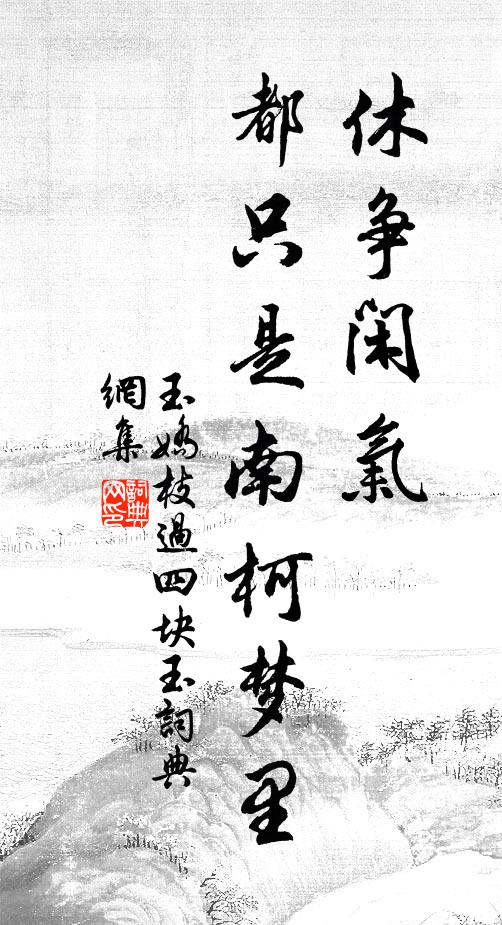 休争闲氣
都只是南柯梦里
玉嬌枝過四块玉詞典
網集
詞典
网印